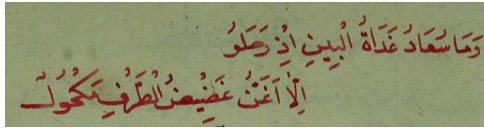 وَمَا سُعَادُ غَدَاةُ الْبَيْنِ اِذْ رَحَلُو
اِلَّا اَغَنُّ غَضِيْضُ الْطَّرْفِ مَكْحُوْلُ